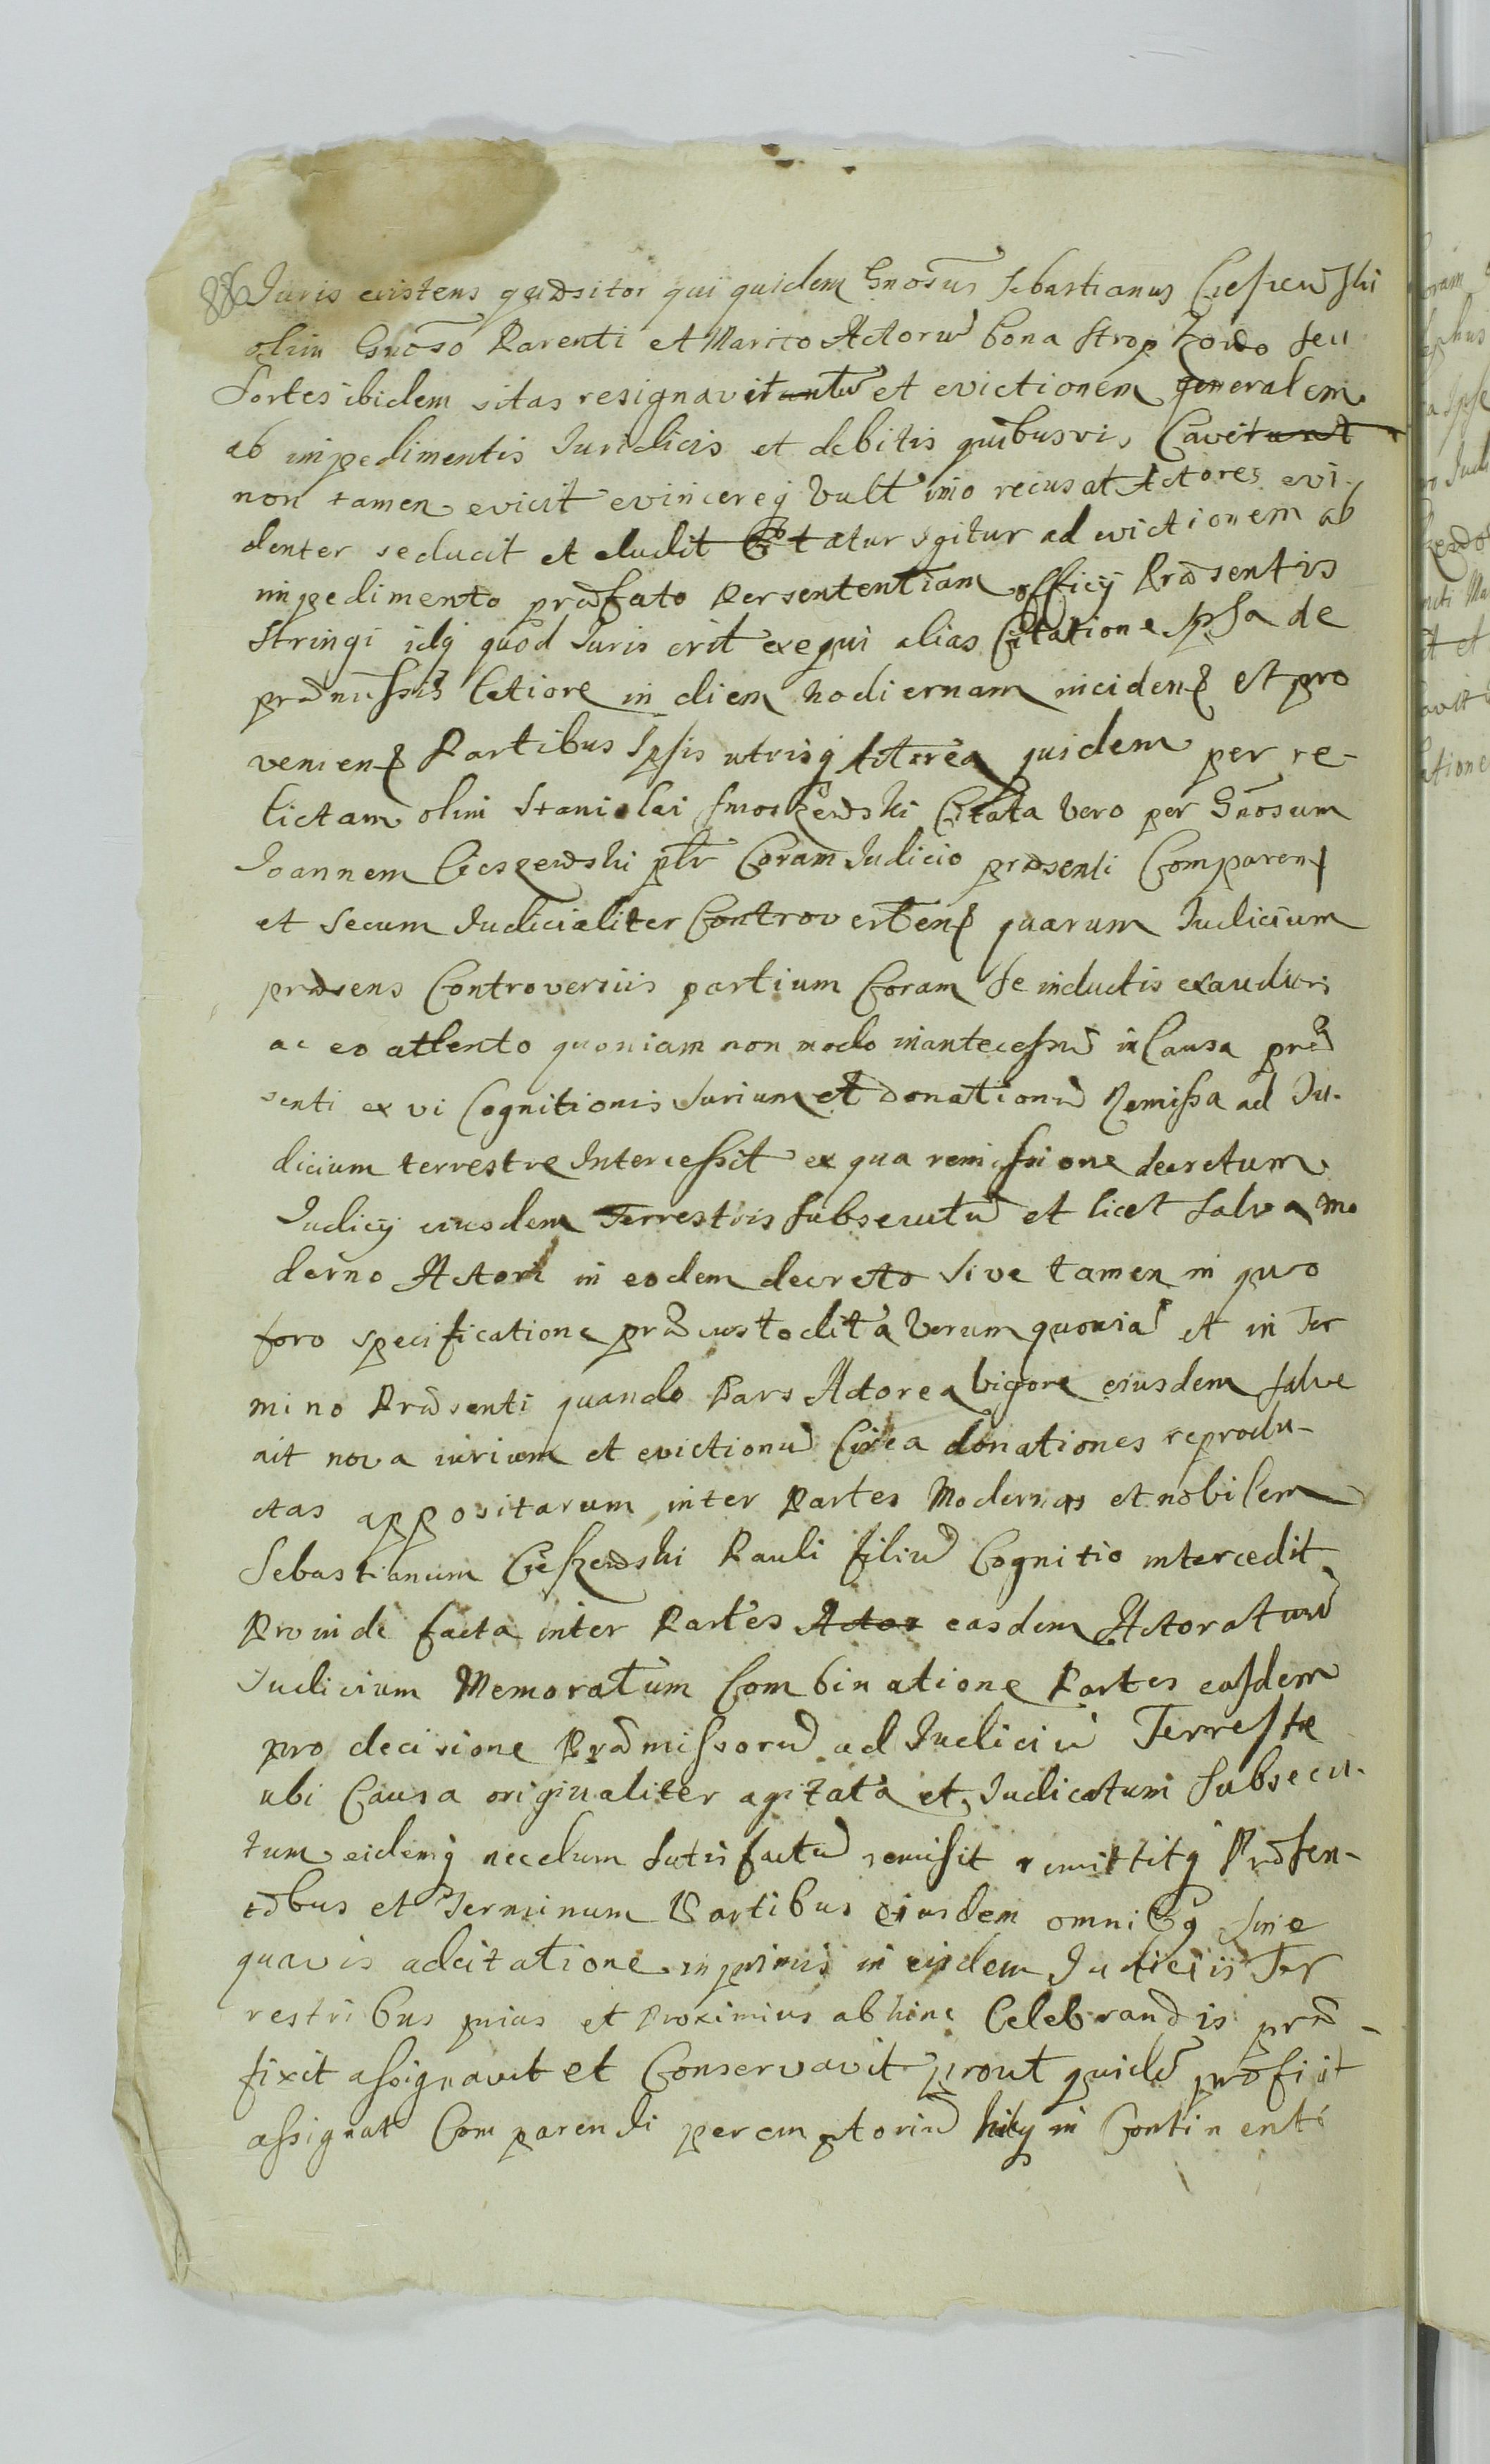 Juris existens quæsitor qui quidem Gnosus Sebastianus Cieszewski
olim Gnoso Parenti et Marito Actorũ bona Strop Zowo seu
Sortes ibidem sitas resignavit et evictionem generalem
ab impedimentis Juridicis et debitis quibusvis Cavit
non tamen evicit evincereq vult imo recusat Actores evi-
denter seducit et eludit Citatur Igitur ad evictionem ab
impedimento præfato Per sententiam officij Præsentis
stringi idq quod Juris erit exequi alias Citatione Ipsa de
præmissis latiore in diem hodiernam inciden et pro
venien Partibus Ipsis utrisq Actorea quidem per re-
lictam olim Stanislai Smoszewski Citata vero per Gnosum
Joannem Cieszewski pltr Coram Judicio præsenti Comparen
et secum Judicialiter Controverten quarum Judicium
præsens Controversiis partium Coram se inductis exauditis
ac eo attento quoniam non modo in antecessũ in Causa præ
senti ex vi Cognitionis Jurium et donationũ Remissa ad Ju-
dicium terrestre Intercessit ex qua remissione decretum
Judicij eiusdem Terrestris subsecutũ et licet salva mo
derno Actori in eodem decreto sive tamen in quo
foro specificatione præcustodita Verum quoniã et in Ter
mino Præsenti quando Pars Actorea vigore eiusdem salvæ
ait nova iurium et evictionũ Circa donationes reprodu-
ctas appositarum inter Partes Modernas et nobilem
Sebastianum Cieszewski Pauli filiũ Cognitio intercedit
Proinde facta inter Partes Actor easdem Actoratuũ
Judicium Memoratum Combinatione Partes easdem
pro decisione Præmissorũ ad Judiciũ Terrestre
ubi Causa originaliter agitata et Judicatum Subsecu-
tum eidemq necdum satisfactũ remisit remittitq Præsen-
tibus et Terminum Partibus eiusdem omnibq sine
quavis adcitatione in primis in eisdem Judiciis Ter
restribus prius et Proximius abhinc Celebrandis præ-
fixit assignavit et Conservavit prout quidẽ præfigit
assignat Comparendi peremptoriũ in Continenti